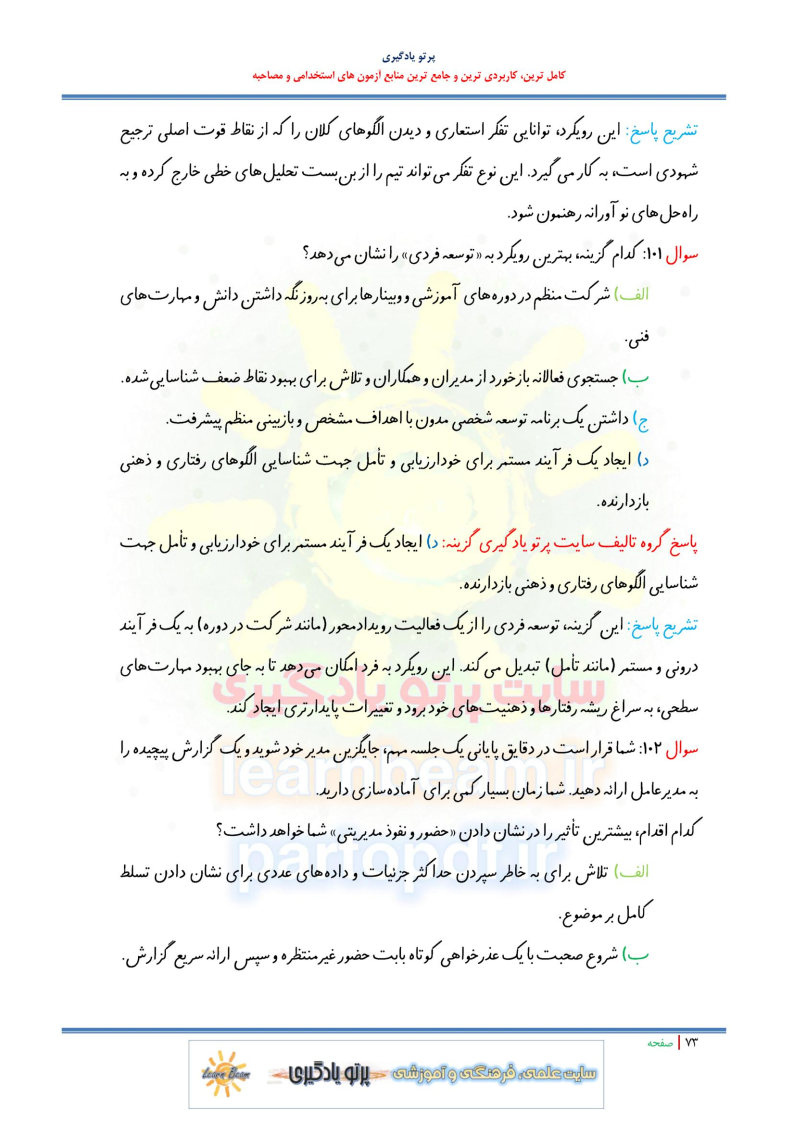 پرتو یادگیری
کامل ترین، کاربردی ترین و جامع ترین منابع آزمون های استخدامی و مصاحبه
تشریح پاسخ: این رویکرد، توانایی تفکر استعاری و دیدن الگوهای کلان را که از نقاط قوت اصلی ترجیح
شهودی است، به کار می گیرد. این نوع تفکر می‌تواند تیم را از بن‌بست تحلیل‌های خطی خارج کرده و به
راه‌حل‌های نوآورانه رهنمون شود.
سوال ۱۰۱: کدام گزینه، بهترین رویکرد به «توسعه فردی» را نشان می‌دهد؟
الف) شرکت منظم در دوره‌های آموزشی و وبینارها برای به‌روز نگه داشتن دانش و مهارت‌های
فنی.
ب) جستجوی فعالانه بازخورد از مدیران و همکاران و تلاش برای بهبود نقاط ضعف شناسایی‌شده.
ج) داشتن یک برنامه توسعه شخصی مدون با اهداف مشخص و بازبینی منظم پیشرفت.
د) ایجاد یک فرآیند مستمر برای خودارزیابی و تأمل جهت شناسایی الگوهای رفتاری و ذهنی
بازدارنده.
پاسخ گروه تالیف سایت پرتو یادگیری گزینه: د) ایجاد یک فرآیند مستمر برای خودارزیابی و تأمل جهت
شناسایی الگوهای رفتاری و ذهنی بازدارنده.
تشریح پاسخ: این گزینه، توسعه فردی را از یک فعالیت رویدادمحور (مانند شرکت در دوره) به یک فرآیند
درونی و مستمر (مانند تأمل) تبدیل می‌کند. این رویکرد به فرد امکان می‌دهد تا به جای بهبود مهارت‌های
سطحی، به سراغ ریشه رفتارها و ذهنیت‌های خود برود و تغییرات پایدارتری ایجاد کند.
سایت پرتو یادگیری
سوال ۱۰۲: شما قرار است در دقایق پایانی یک جلسه مهم، جایگزین مدیر خود شوید و یک گزارش پیچیده را
learnbeam.ir
به مدیرعامل ارائه دهید. شما زمان بسیار کمی برای آماده‌سازی دارید.
کدام اقدام، بیشترین تأثیر را در نشان دادن «حضور و نفوذ مدیریتی» شما خواهد داشت؟
partopdf.ir
الف) تلاش برای به خاطر سپردن حداکثر جزئیات و داده‌های عددی برای نشان دادن تسلط
کامل بر موضوع.
ب) شروع صحبت با یک عذرخواهی کوتاه بابت حضور غیرمنتظره و سپس ارائه سریع گزارش.
۷۳ | صفحه
سایت علمی، فرهنگی و آموزشی پرتو یادگیری Learn Beam